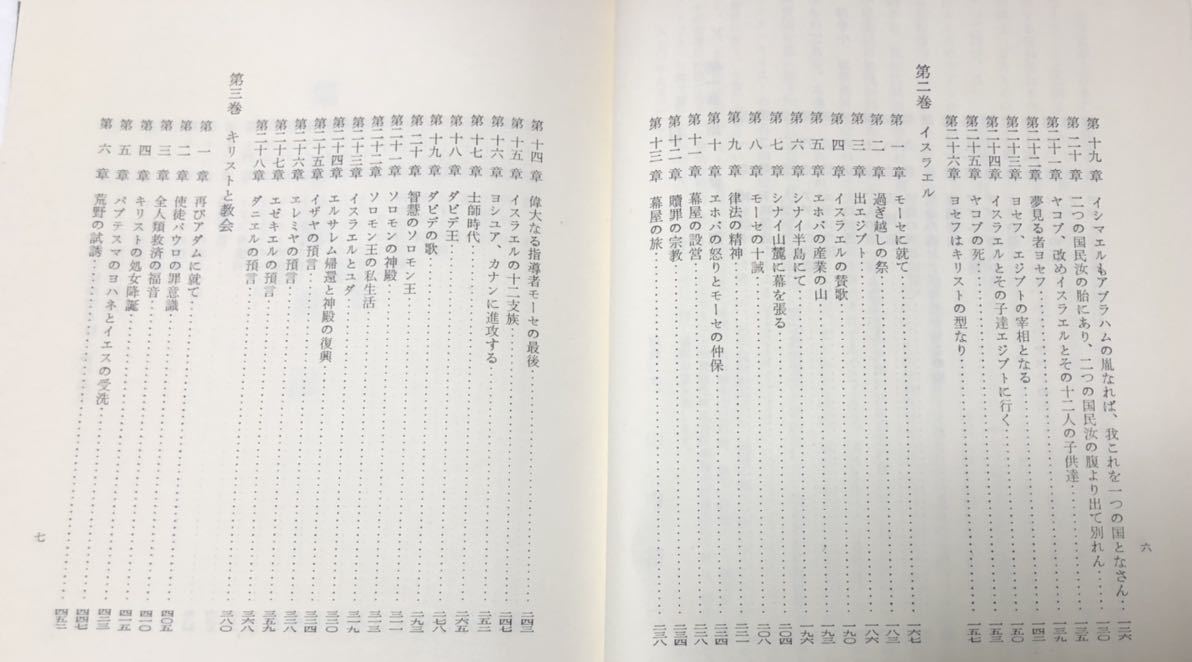 第十九章 イシマエルもアブラハムの胤なれば、我これを一つの国となさん 一二六
第二十章 二つの国民汝の胎にあり、二つの国民汝の腹より出て別れん 一三〇
第二十一章 ヤコブ、改めイスラエルとその十二人の子供達 一三五
第二十二章 夢見る者ヨセフ 一三九
第二十三章 ヨセフ、エジプトの宰相となる 一四二
第二十四章 イスラエルとその子達エジプトに行く 一五〇
第二十五章 ヤコブの死 一五三
第二十六章 ヨセフはキリストの型なり 一五七
第二巻 イスラエル
第一章 モーセに就て 一六七
第二章 過ぎ越しの祭 一八三
第三章 出エジプト 一八六
第四章 イスラエルの賛歌 一九〇
第五章 エホバの産業の山 一九三
第六章 シナイ半島にて 一九六
第七章 シナイ山麓に幕を張る 二〇四
第八章 モーセの十誡 二〇八
第九章 律法の精神 二二一
第十章 エホバの怒りとモーセの仲保 二二四
第十一章 幕屋の設営 二二八
第十二章 贖罪の宗教 二三四
第十三章 幕屋の旅 二三八
六
第十四章 偉大なる指導者モーセの最後 二四三
第十五章 イスラエルの十二支族 二四七
第十六章 ヨシュア、カナンに進攻する 二五二
第十七章 士師時代 二六五
第十八章 ダビデ王 二七八
第十九章 ダビデの歌 二九三
第二十章 智慧のソロモン王 三一一
第二十一章 ソロモンの神殿 三一三
第二十二章 ソロモン王の私生活 三一九
第二十三章 イスラエルとユダ 三三〇
第二十四章 エルサレム帰還と神殿の復興 三三四
第二十五章 イザヤの預言 三三八
第二十六章 エレミヤの預言 三五九
第二十七章 エゼキエルの預言 三六八
第二十八章 ダニエルの預言 三八〇
第三巻 キリストと教会
第一章 再びアダムに就て 四〇五
第二章 使徒パウロの罪意識 四一〇
第三章 全人類救済の福音 四一五
第四章 キリストの処女降誕 四二三
第五章 バプテスマのヨハネとイエスの受洗 四四七
第六章 荒野の試誘 四五二
七